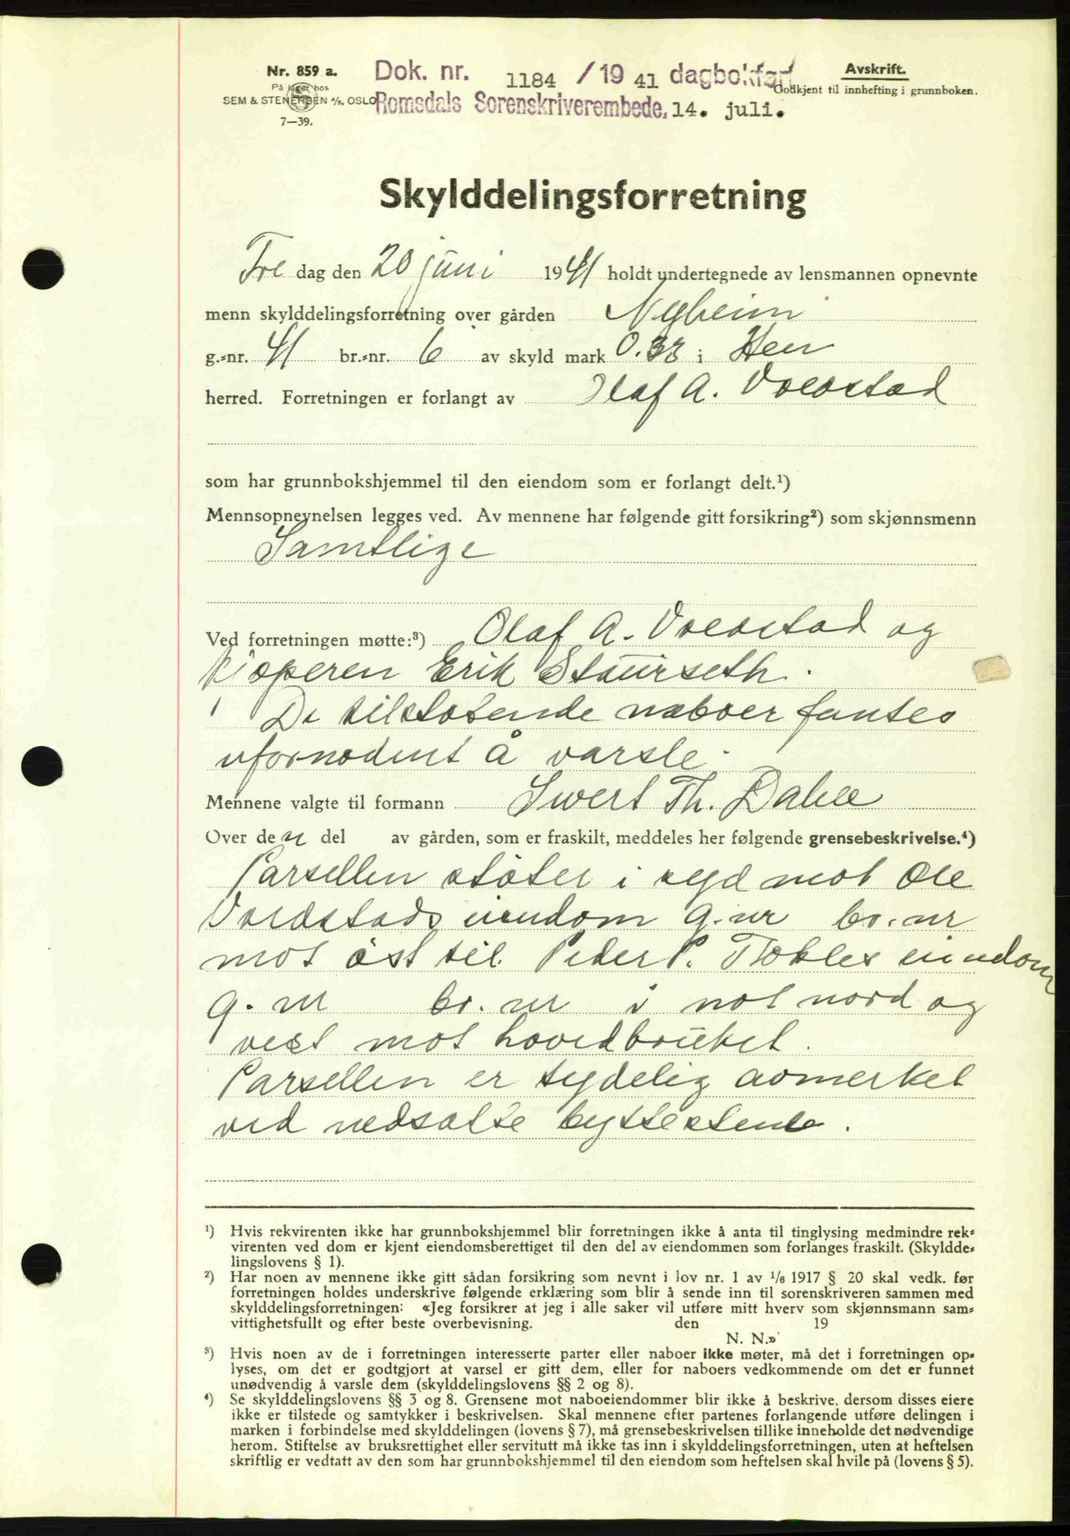 Nr. 859 a.
På lager hos
SEM & STENERSEN A/S, OSLO
7—39.
Dok. nr. 1184 / 19 41 dagbokført
Romsdals Sorenskriverembede, 14. juli.
Avskrift.
Godkjent til innhefting i grunnboken.
Skylddelingsforretning
Fre dag den 20 juni 1941 holdt undertegnede av lensmannen opnevnte
menn skylddelingsforretning over gården Nyheim
g.=nr. 41 br.=nr. 6 av skyld mark 0.38 i Hen
herred. Forretningen er forlangt av Olaf A. Voldstad
som har grunnbokshjemmel til den eiendom som er forlangt delt.¹)
Mennsopnevnelsen legges ved. Av mennene har følgende gitt forsikring²) som skjønnsmenn
Samtlige
Ved forretningen møtte:³) Olaf A. Voldstad og
kjøperen Erik Staurseth.
De tilstøtende naboer fantes
ufornødent å varsle.
Mennene valgte til formann Sivert Th. Dahle
Over den del av gården, som er fraskilt, meddeles her følgende grensebeskrivelse.⁴)
Parsellen støter i syd mot Ole
Voldstads eiendom g.nr br.nr
mot øst til Peder P. eiendom
g.nr br.nr i not nord og
vest mot hovedbruket.
Parsellen er tydelig avmerket
ved nedsatte byttestene.
¹) Hvis rekvirenten ikke har grunnbokshjemmel blir forretningen ikke å anta til tinglysing medmindre rek=
virenten ved dom er kjent eiendomsberettiget til den del av eiendommen som forlanges fraskilt. (Skyldde=
lingslovens § 1).
²) Har noen av mennene ikke gitt sådan forsikring som nevnt i lov nr. 1 av 1/6 1917 § 20 skal vedk. før
forretningen holdes underskrive følgende erklæring som blir å sende inn til sorenskriveren sammen med
skylddelingsforretningen: «Jeg forsikrer at jeg i alle saker vil utføre mitt hverv som skjønnsmann sam=
vittighetsfullt og efter beste overbevisning. den 19
N. N.»
³) Hvis noen av de i forretningen interesserte parter eller naboer ikke møter, må det i forretningen op=
lyses, om det er godtgjort at varsel er gitt dem, eller for naboers vedkommende om det er funnet
unødvendig å varsle dem (skylddelingslovens §§ 2 og 8).
⁴) Se skylddelingslovens §§ 3 og 8. Grensene mot naboeiendommer blir ikke å beskrive, dersom disses eiere
ikke er tilstede og samtykker i beskrivelsen. Skal mennene efter partenes forlangende utføre delingen i
marken i forbindelse med skylddelingen (lovens § 7), må grensebeskrivelsen tillike inneholde det nødvendige
herom. Stiftelse av bruksrettighet eller servitutt må ikke tas inn i skylddelingsforretningen, uten at heftelsen
skriftlig er vedtatt av den som har grunnbokshjemmel til den eiendom som heftelsen skal hvile på (lovens § 5).